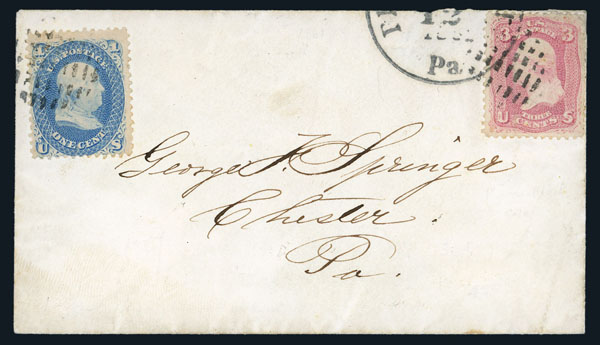 U.S. POSTAGE
1 1
ONE CENT
U S
12
Pa.
3 3
U.S.
POSTAGE
THREE
CENTS
U S
George F. Springer
Chester.
Pa.